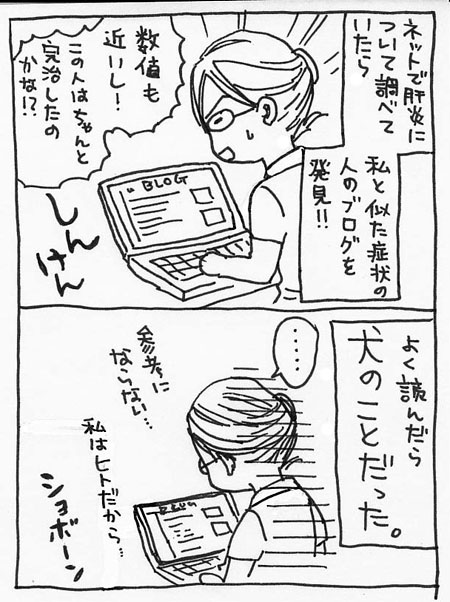 ネットで肝炎に
ついて調べて
いたら
私と似た症状の
人のブログを
発見!!
数値も
近いし!
この人はちゃんと
完治したの
かな!?
BLOG
しん
けん
よく読んだら
犬のことだった。
・・・・・
参考に
ならない…
私はヒトだから…
BLOG
ショボーン